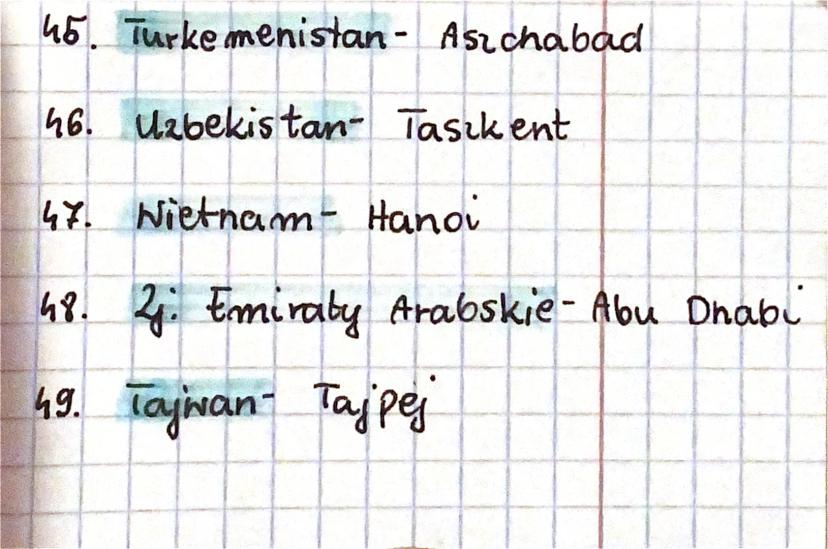 45. Turkemenistan- Aszchabad
46. Uzbekistan- Taszkent
47. Wietnam- Hanoi
48. Zj. Emiraty Arabskie- Abu Dhabi
49. Tajwan- Tajpej